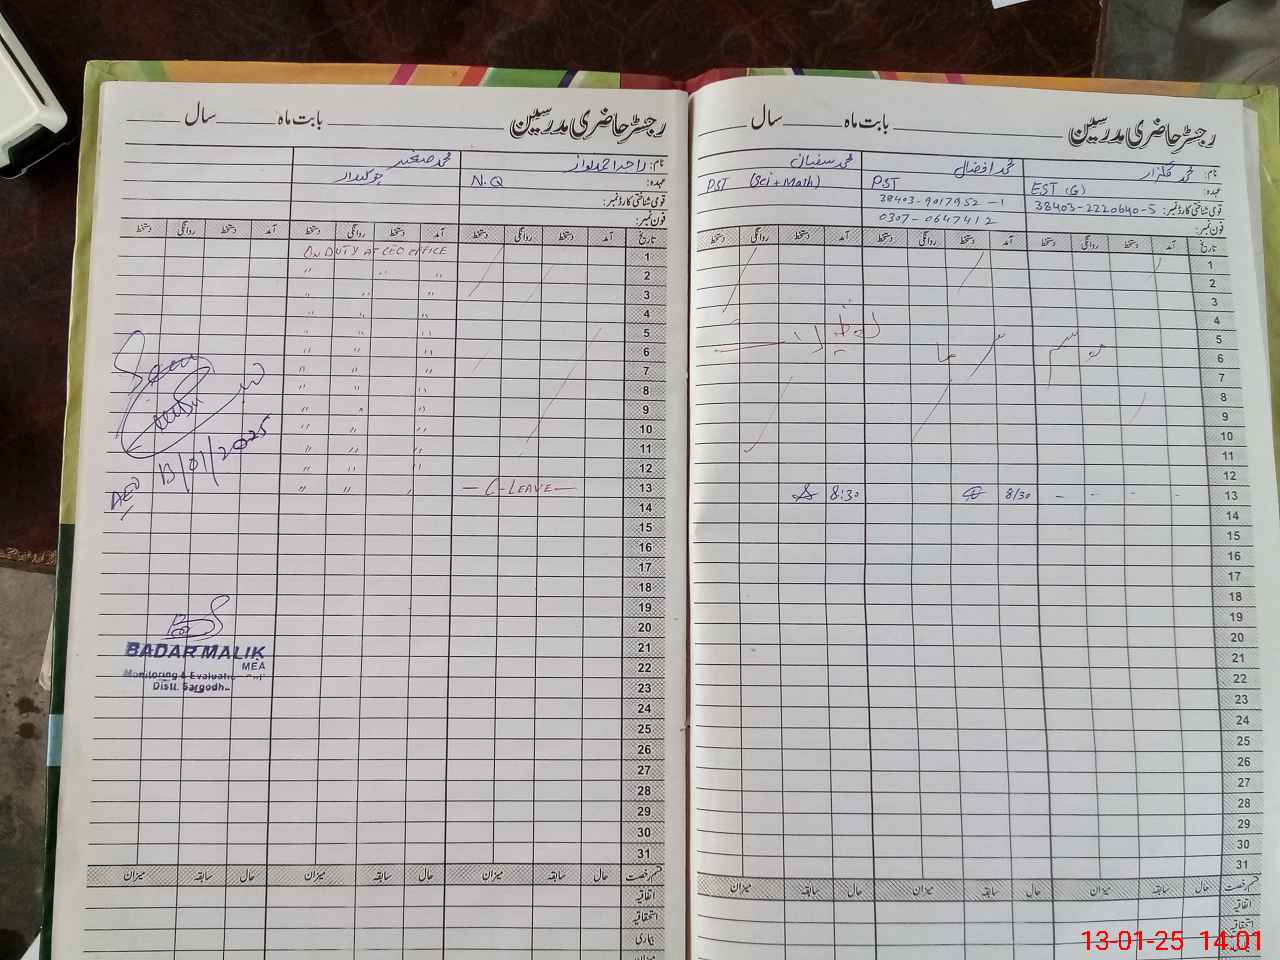 رجسٹر حاضری مدرسین بابت ماہ سال
نام: محمد گلزار محمد افضال محمد سفیان
عہدہ: EST (G) PST PST (Sci + Math)
قومی شناختی کارڈ نمبر: 38403-2220640-5 38403-9017952-1
فون نمبر: 0307-0647412
تاریخ آمد دستخط روانگی دستخط آمد دستخط روانگی دستخط آمد دستخط روانگی دستخط
1
2
3
4
5
6
7
8
9
10
11
12
13 - - - - 8/30 8:30
14
15
16
17
18
19
20
21
22
23
24
25
26
27
28
29
30
31
موسم سرما
تعطیلات
قسم رخصت حال سابقہ میزان حال سابقہ میزان حال سابقہ میزان
اتفاقیہ
استحقاقیہ
بیماری
رجسٹر حاضری مدرسین بابت ماہ سال
نام: راجہ احمد نواز محمد صغیر
عہدہ: N.Q چوکیدار
قومی شناختی کارڈ نمبر:
فون نمبر:
تاریخ آمد دستخط روانگی دستخط آمد دستخط روانگی دستخط آمد دستخط روانگی دستخط
1 ON DUTY AT CEO OFFICE
2 " " "
3 " " "
4 " " "
5 " " "
6 " " "
7 " " "
8 " " "
9 " " "
10 " " "
11 " " "
12 " " "
13 — C-LEAVE — " " "
14
15
16
17
18
19
20
21
22
23
24
25
26
27
28
29
30
31
AEO 13/01/2025
BADAR MALIK
MEA
Monitoring & Evaluation
Distt. Sargodha
قسم رخصت حال سابقہ میزان حال سابقہ میزان حال سابقہ میزان
اتفاقیہ
استحقاقیہ
بیماری
میزان
13-01-25 14:01